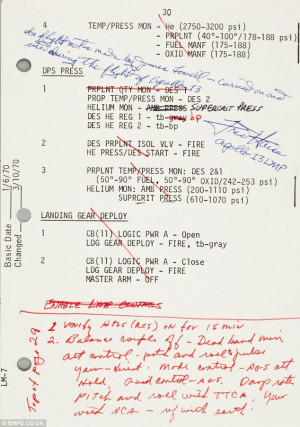 30
4 TEMP/PRESS MON - He (2750-3200 psi)
- PRPLNT (40°-100°/178-188 psi)
- FUEL MANF (175-188)
- OXID MANF (175-188)
in flight notes made by Lovell - carried on and
used during the flight of Apollo 13
DPS PRESS
1 PRPLNT QTY MON - DES 1
PROP TEMP/PRESS MON - DES 2
HELIUM MON - AMB PRESS SUPERCRIT PRESS
DES HE REG 1 - tb-gray bp
DES HE REG 2 - tb-bp
Fred Haise
Apollo 13 LMP
2 DES PRPLNT ISOL VLV - FIRE
HE PRESS/DES START - FIRE
3 PRPLNT TEMP/PRESS MON: DES 2&1
(50°-90° FUEL, 50°-90° OXID/242-253 psi)
HELIUM MON: AMB PRESS (200-1110 psi)
SUPRCRIT PRESS (610-1070 psi)
LANDING GEAR DEPLOY
1 CB(11) LOGIC PWR A - Open
LDG GEAR DEPLOY - FIRE, tb-gray
2 CB(11) LOGIC PWR A - Close
LDG GEAR DEPLOY - FIRE
MASTER ARM - OFF
1/6/70
3/10/70
Basic Date
Changed
LM-7
1 Verify on for 15 min
2. Balance couples off - Dead band min
att control - pitch and roll pulse
yaw - Mode control - AGS att
Hold, Guid control - AGS. Damp rate
Pitch and roll with TTCA. Yaw
with ACA - with earth.
Top of page 29
© BNPS.CO.UK